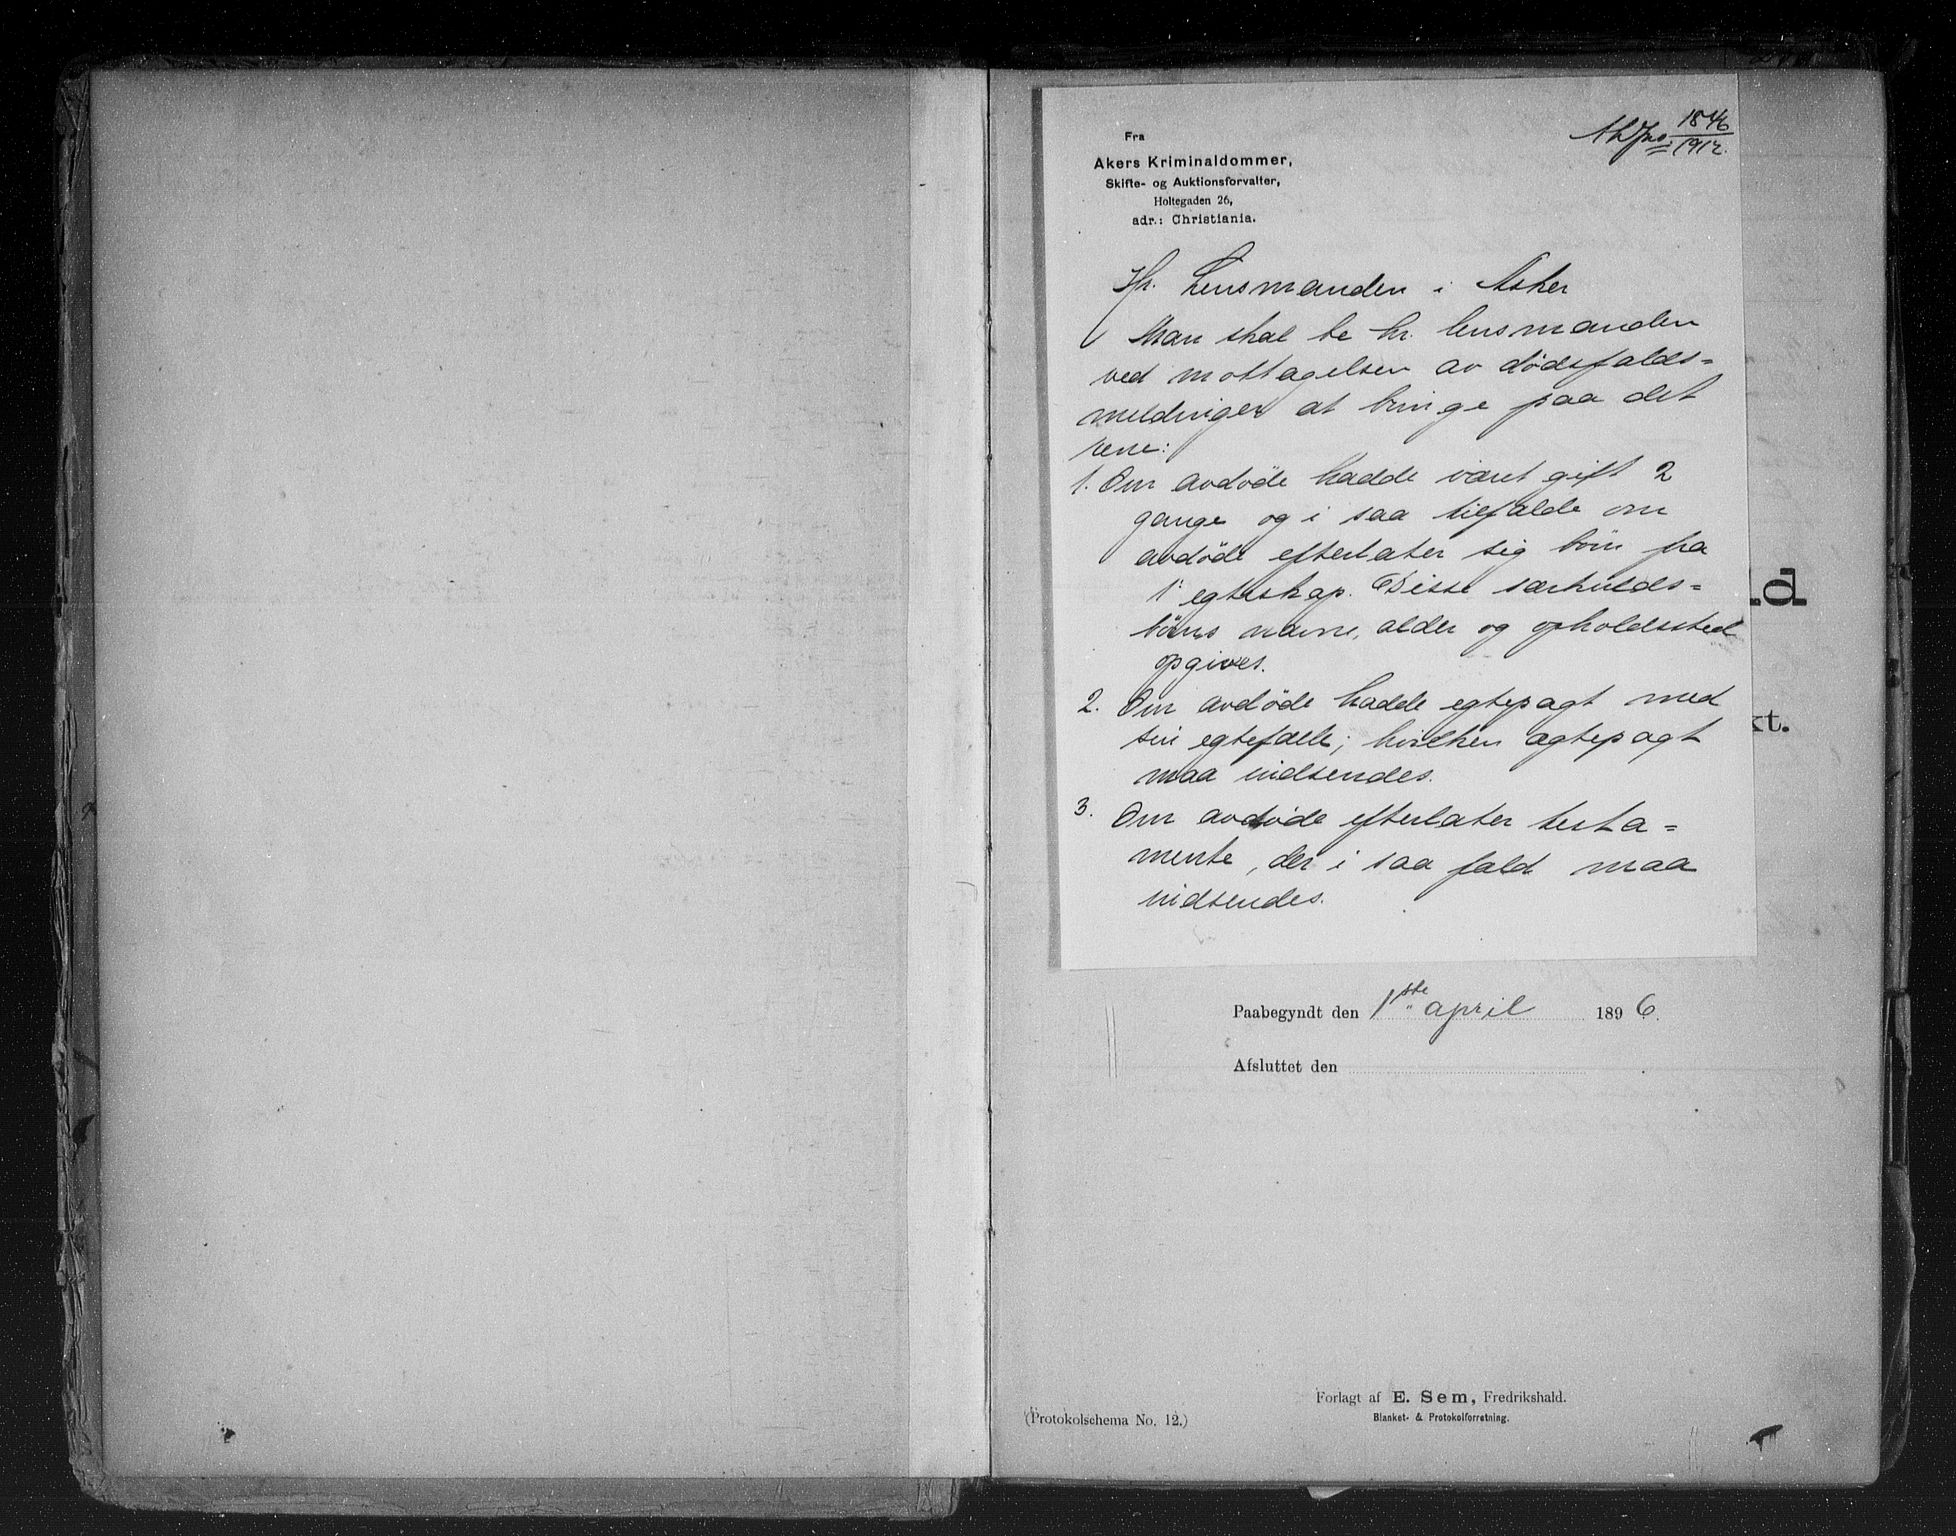 Fra
Akers Kriminaldommer,
Skifte- og Auktionsforvalter,
Holtegaden 26,
adr.: Christiania.
1846
1912.
Hr. Lensmanden i Asker
Man skal be hr. lensmanden
ved mottagelsen av dødsfalds=
meldinger at bringe paa det
rene:
1. Om avdøde hadde været gift 2
gange og i saa tilfælde om
avdøde efterlater sig børn fra
1. egteskap. Disse særkulds=
børns navne, alder og opholdssted
opgives.
2. Om avdøde hadde egtepagt med
sin egtefælle; hvilken ægtepagt
maa indsendes.
3. Om avdøde efterlater testa=
mente, der i saa fald maa
indsendes.
ld
kt.
Paabegyndt den 1ste april 1896.
Afsluttet den
Forlagt af E. Sem, Fredrikshald.
Blanket- & Protokolforretning.
(Protokolschema No. 12.)